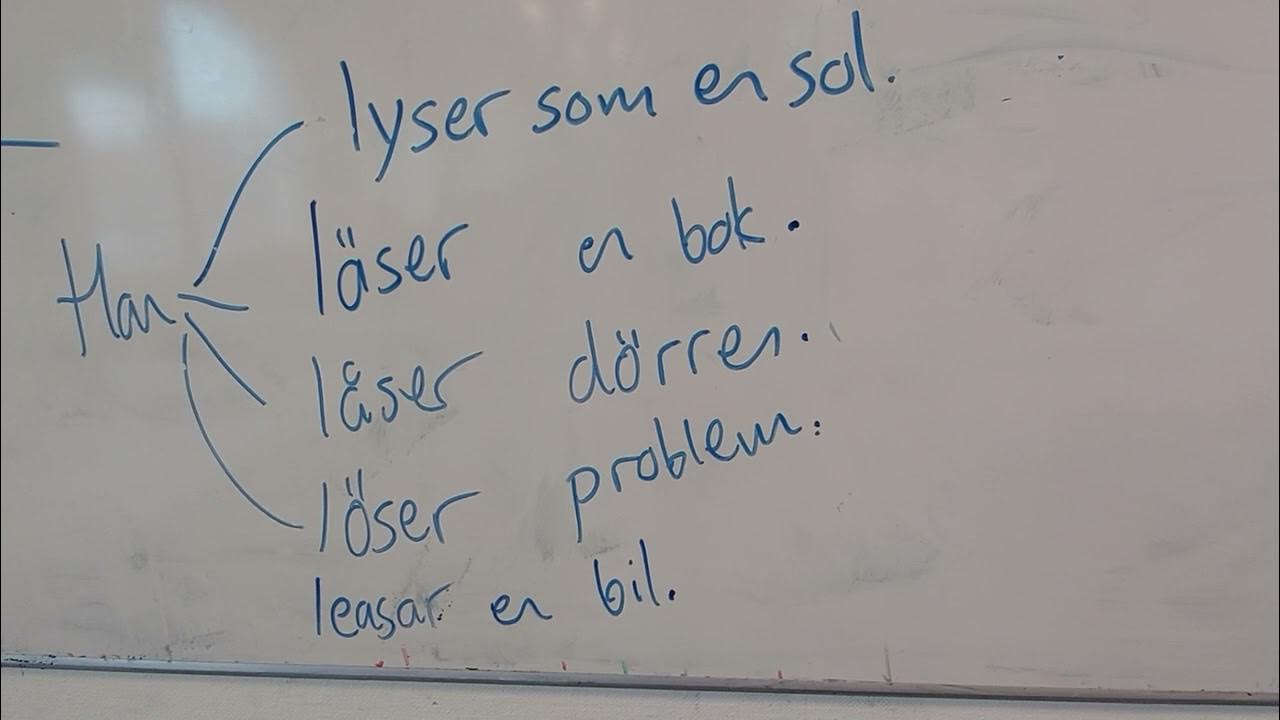 Han
lyser som en sol.
läser en bok.
låser dörren.
löser problem.
leasar en bil.